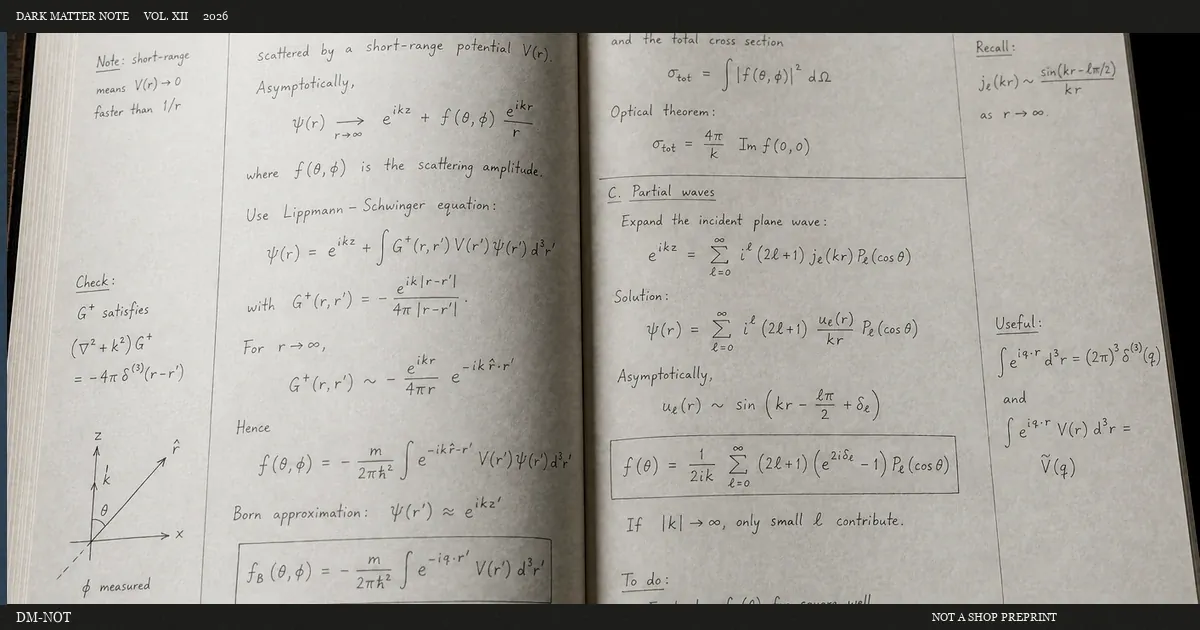 DARK MATTER NOTE VOL. XII 2026
Note: short-range
means V(r) → 0
faster than 1/r
Check:
G⁺ satisfies
(∇² + k²) G⁺
= −4π δ⁽³⁾(r−r′)
z
r̂
k
θ
x
ϕ measured
scattered by a short-range potential V(r).
Asymptotically,
ψ(r) ⟶_{r→∞} e^{ikz} + f(θ, ϕ) e^{ikr}/r
where f(θ, ϕ) is the scattering amplitude.
Use Lippmann – Schwinger equation:
ψ(r) = e^{ikz} + ∫ G⁺(r, r′) V(r′) ψ(r′) d³r′
with G⁺(r, r′) = − e^{ik|r−r′|}/4π |r−r′| .
For r → ∞,
G⁺(r, r′) ~ − e^{ikr}/4πr e^{−ik r̂·r′}
Hence
f(θ, ϕ) = − m/2πℏ² ∫ e^{−ik r̂−r′} V(r′) ψ(r′) d³r′
Born approximation: ψ(r′) ≈ e^{ikz′}
f_B (θ, ϕ) = − m/2πℏ² ∫ e^{−iq·r′} V(r′) d³r′
and the total cross section
σ_tot = ∫ |f(θ, ϕ)|² dΩ
Optical theorem:
σ_tot = 4π/k Im f(0, 0)
C. Partial waves
Expand the incident plane wave:
e^{ikz} = Σ_{ℓ=0}^{∞} i^ℓ (2ℓ+1) j_ℓ(kr) P_ℓ(cos θ)
Solution:
ψ(r) = Σ_{ℓ=0}^{∞} i^ℓ (2ℓ+1) u_ℓ(r)/kr P_ℓ(cos θ)
Asymptotically,
u_ℓ(r) ~ sin (kr − ℓπ/2 + δ_ℓ)
f(θ) = 1/2ik Σ_{ℓ=0}^{∞} (2ℓ+1) (e^{2iδ_ℓ} − 1) P_ℓ(cos θ)
If |k| → ∞, only small ℓ contribute.
To do:
Recall:
j_ℓ(kr) ~ sin(kr−ℓπ/2)/kr
as r → ∞.
Useful:
∫ e^{iq·r} d³r = (2π)³ δ⁽³⁾(q)
and
∫ e^{iq·r} V(r) d³r =
Ṽ(q)
DM-NOT
NOT A SHOP PREPRINT